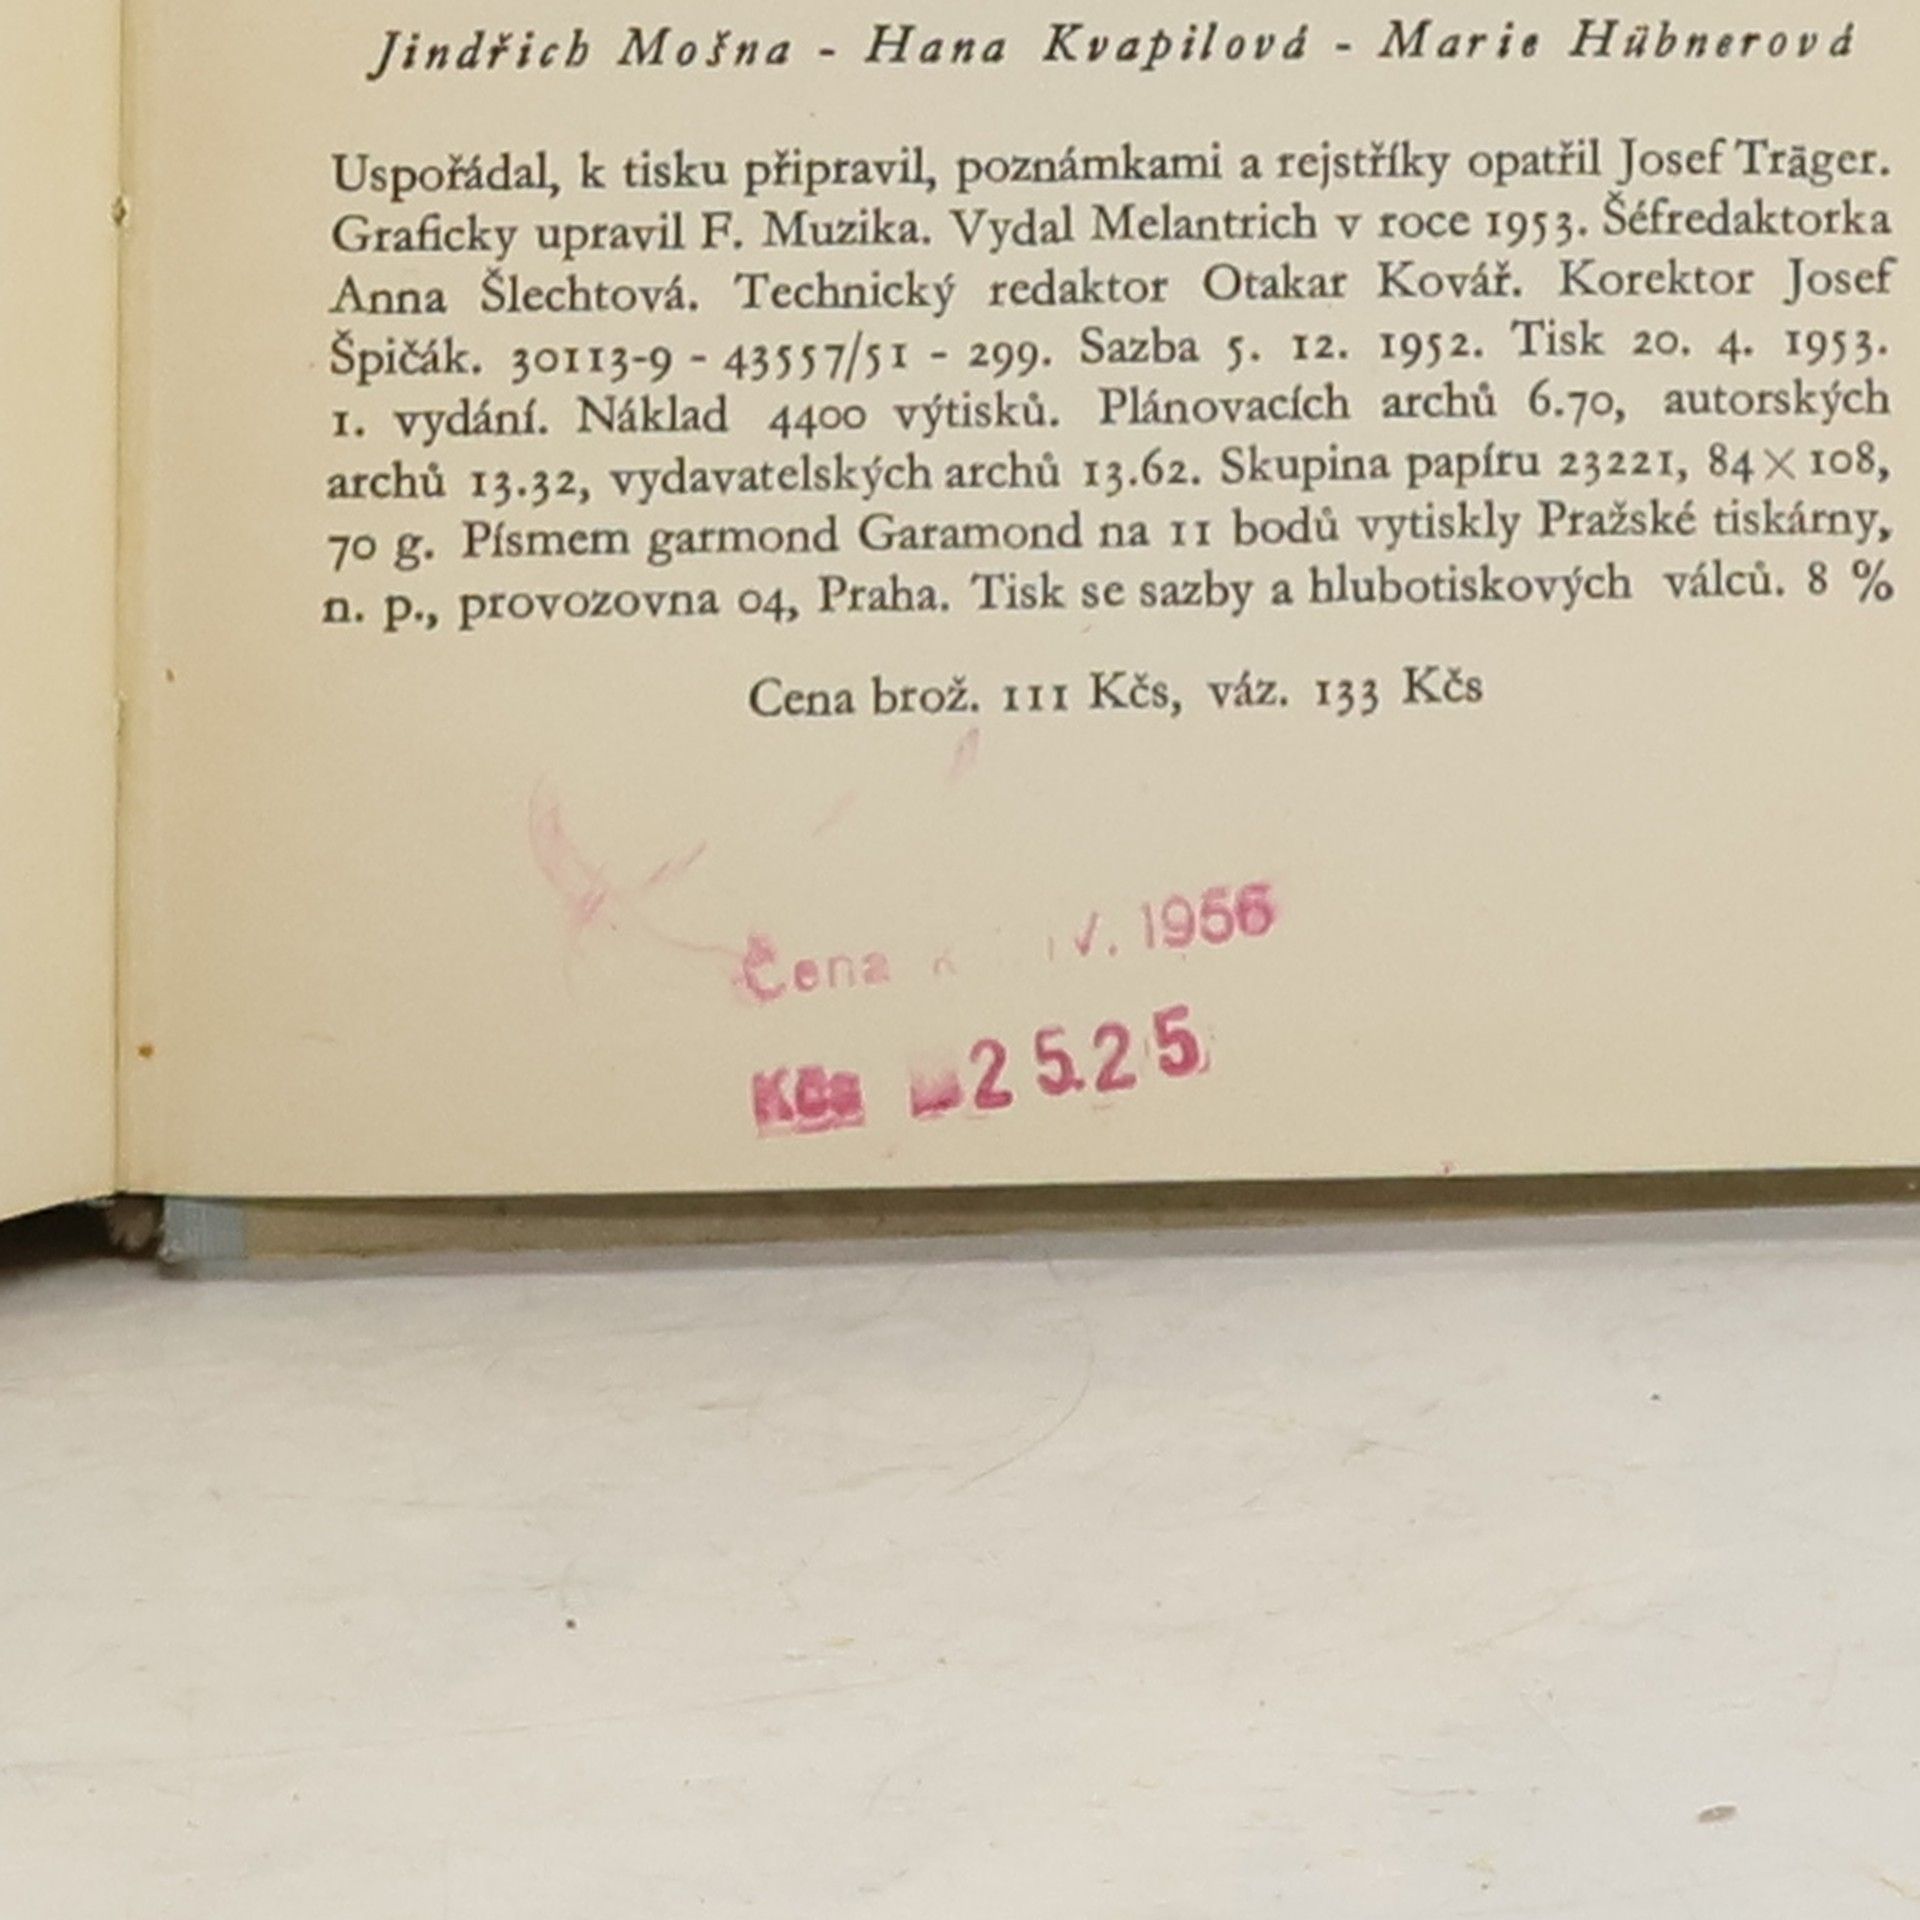 Jindřich Mošna - Hana Kvapilová - Marie Hübnerová
Uspořádal, k tisku připravil, poznámkami a rejstříky opatřil Josef Träger.
Graficky upravil F. Muzika. Vydal Melantrich v roce 1953. Šéfredaktorka
Anna Šlechtová. Technický redaktor Otakar Kovář. Korektor Josef
Špičák. 30113-9 - 43557/51 - 299. Sazba 5. 12. 1952. Tisk 20. 4. 1953.
1. vydání. Náklad 4400 výtisků. Plánovacích archů 6.70, autorských
archů 13.32, vydavatelských archů 13.62. Skupina papíru 23221, 84×108,
70 g. Písmem garmond Garamond na 11 bodů vytiskly Pražské tiskárny,
n. p., provozovna 04, Praha. Tisk se sazby a hlubotiskových válců. 8 %
Cena brož. 111 Kčs, váz. 133 Kčs
Cena
Kčs 25.25